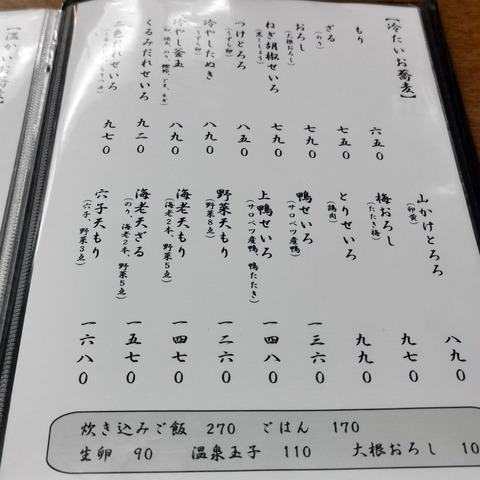 【冷たいお蕎麦】
もり 六五0
ざる 七五0
(のり)
おろし 七九0
(大根おろし)
ねぎ胡椒せいろ 七九0
(黒こしょう)
つけとろろ 八五0
(うずら卵)
冷やしたぬき 八九0
(うずら卵)
冷やし釜玉 八九0
くるみだれせいろ 九二0
二色だれせいろ 九七0
山かけとろろ 八九0
(卵黄)
梅おろし 九七0
(たたき梅)
とりせいろ 九九0
(鶏肉)
鴨せいろ 一三六0
(サロベツ産鴨)
上鴨せいろ 一四八0
(サロベツ産鴨、鴨たたき)
野菜天もり 一二六0
(野菜8点)
海老天もり 一四七0
(海老2本、野菜5点)
海老天ざる 一五七0
(のり、海老2本、野菜5点)
穴子天もり 一六八0
(穴子、野菜3点)
炊き込みご飯 270 ごはん 170
生卵 90 温泉玉子 110 大根おろし 10
【温かいお蕎麦】